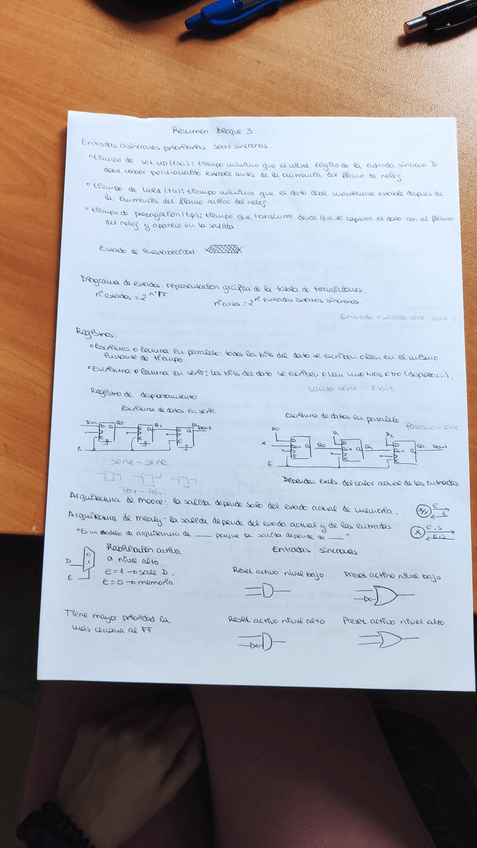 Resumen Bloque 3
Entradas asíncronas prioritarias sobre síncronas
• tiempo de set-up (tsu): tiempo mínimo que el valor lógico de la entrada síncrona D
debe haber permanecido estable antes de la llegada del flanco de reloj.
• tiempo de hold (th): tiempo mínimo que el dato debe mantenerse estable después de
la llegada del flanco activo del reloj.
• tiempo de propagación (tp): tiempo que transcurre desde que se captura el dato con el flanco
del reloj y aparece en la salida.
Estado de metaestabilidad
Diagrama de estados: representación gráfica de la tabla de transiciones.
nº estados = 2^nº FF nº arcos = 2^nº entradas externas síncronas
Entrada serie: 1
Registros:
• Escritura o lectura en paralelo: todos los bits del dato se escriben o leen en el mismo
instante de tiempo
• Escritura o lectura en serie: los bits del dato se escriben o leen uno tras otro (desplazam.).
salida serie: 1 bit
Registro de desplazamiento
Escritura de datos en serie Escritura de datos en paralelo
Paralelo-serie
Din Q0 Q1 Q2 Dout
D0 D1 D2
Q0 Q1 Q2 Dout
E E
serie - serie
Par - Par.
Dependen del valor actual de las entradas
Arquitectura de moore: la salida depende solo del estado actual de memoria.
Arquitectura de mealy: la salida depende del estado actual y de las entradas
"Es un modelo de arquitectura de ___ porque la salida depende de ___"
Habilitación activa
a nivel alto
E = 1 → sale D.
E = 0 → memoria
D
E
Entradas síncronas
Reset activo nivel bajo Preset activo nivel bajo
Tiene mayor prioridad la
más cercana al FF.
Reset activo nivel alto Preset activo nivel alto